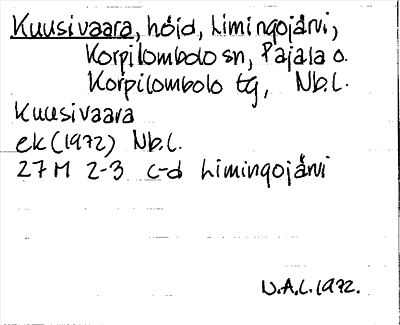 Kuusivaara, höjd, Limingojärvi,
Korpilombolo sn, Pajala o.
Korpilombolo tg, Nb.l.
Kuusivaara
ek (1972) Nb.l.
27 M 2-3 c-d Limingojärvi
N.A.L. 1972.